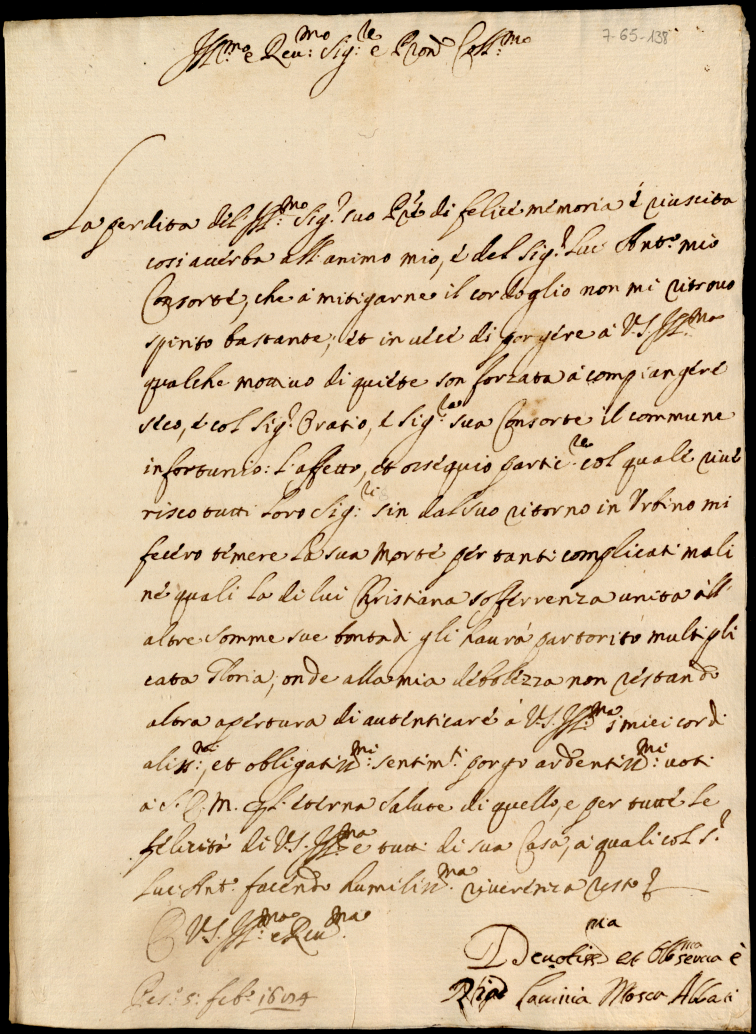 7-65-138
Ill.mo e Reu:mo Sig:re e Pron Coll:mo
La perdita del Ill:mo Sig.r suo Pre di felice memoria é riuscita
cosi acerba all'animo mio, é del Sig.r Luc' Ant.o mio
Consorte, che á mitigarne il cordoglio non mi ritrouo
spirito bastante; ét in uece di porgere á V.S. Ill.ma
qualche motiuo di quiete son forzata á compiangere
seco, é col Sig.r Oratio, é Sig.ra sua Consorte il commune
infortunio: L'affetto, et ossequio partic.re col quale riue
risco tutti Loro Sig:ri sin dal suo ritorno in Vrbino mi
fecero temere la sua morte per tanti complicati mali
né quali La di lui Christiana sofferrenza unita all'
altre somme sue bontadi gli haurá partorito multipli
cata Gloria; onde alla mia debolezza non restando
altra apertura di autenticare á V.S. Ill.ma i miei cordi
aliss:mi, et obligatiss:mi sentim.ti porgo ardentiss:mi uoti
a S.D.M. p l'eterna salute di quello, e per tutte Le
felicitá di V.S. Ill:ma e tutti di sua Casa, a quali col S.r
Luc' Ant.o facendo humiliss.ma riuerenza resto
D V.S. Ill:ma e Reu.ma
Pes.o 5: feb.o
Deuotiss.ma et Oblig.ma serua é
Lauinia Mosca Abbati